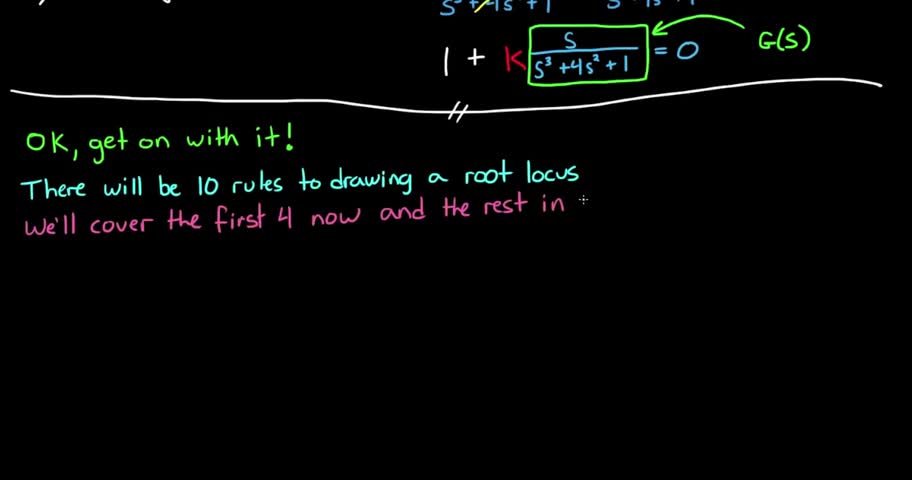 1 + K s / s³ + 4s² + 1 = 0
G(s)
OK, get on with it!
There will be 10 rules to drawing a root locus
We'll cover the first 4 now and the rest in